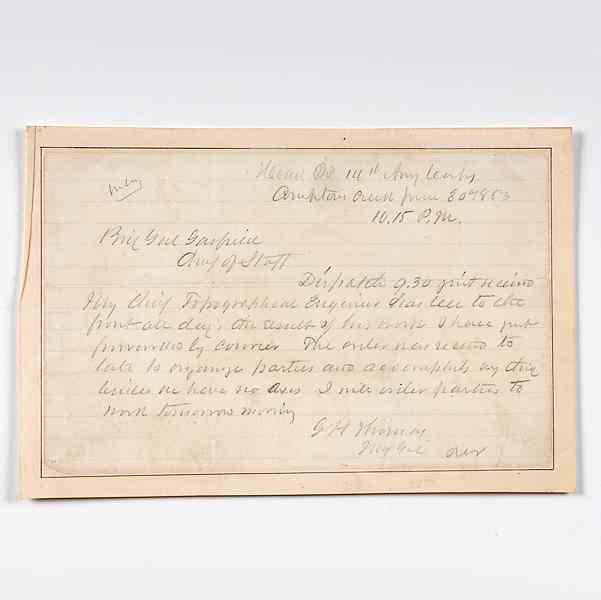 Head Qrs 14th Army Corps
Crumptons Creek June 30 1863
10.15 P.M.
Brig Genl Garfield
Chief of Staff
Dispatch 9.30 just received
My Chief Topographical Engineer has been to the
front all day, the result of his work I have just
forwarded by Courier The order was received to
late to organize parties and accomplish any thing
besides we have no axes I will order parties to
work tomorrow morning
G H Thomas
Maj Genl